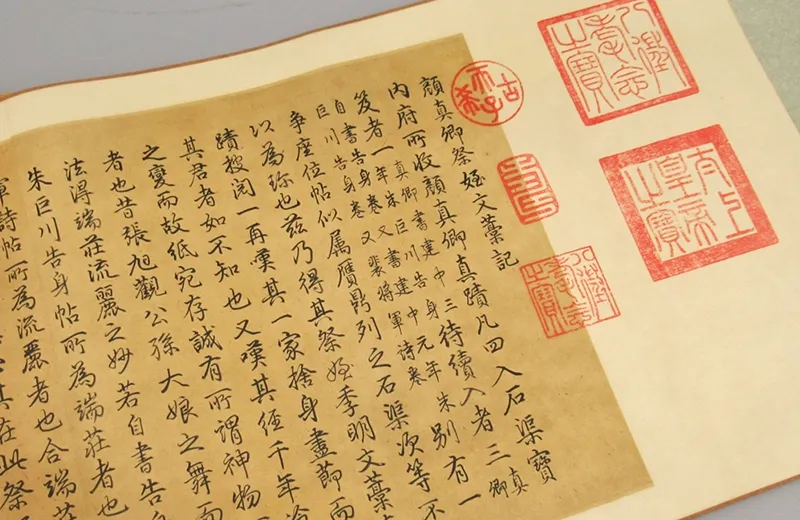 八徵耄念之寶
太上皇帝之寶
古稀天子
壽
八徵耄念之寶
顏真卿祭姪文藁記
內府所收顏真卿真蹟凡四入石渠寶
笈者一真卿書建中三年朱巨川告身待續入者三真卿
自書告身卷又書建中元年朱巨川告身卷又裴將軍詩卷別有一
爭座位帖似屬贋鼎列之石渠次等不
以為珍也茲乃得其祭姪季明文藁
蹟披閱一再嘆其一家捨身盡節而
其君者如不知也又嘆其經千年
之變而故紙宛存誠有所謂神物
者也昔張旭觀公孫大娘之舞而
法得端莊流麗之妙若自書告
朱巨川告身帖所為端莊者也
軍詩帖所為流麗者也合端莊
其在此祭